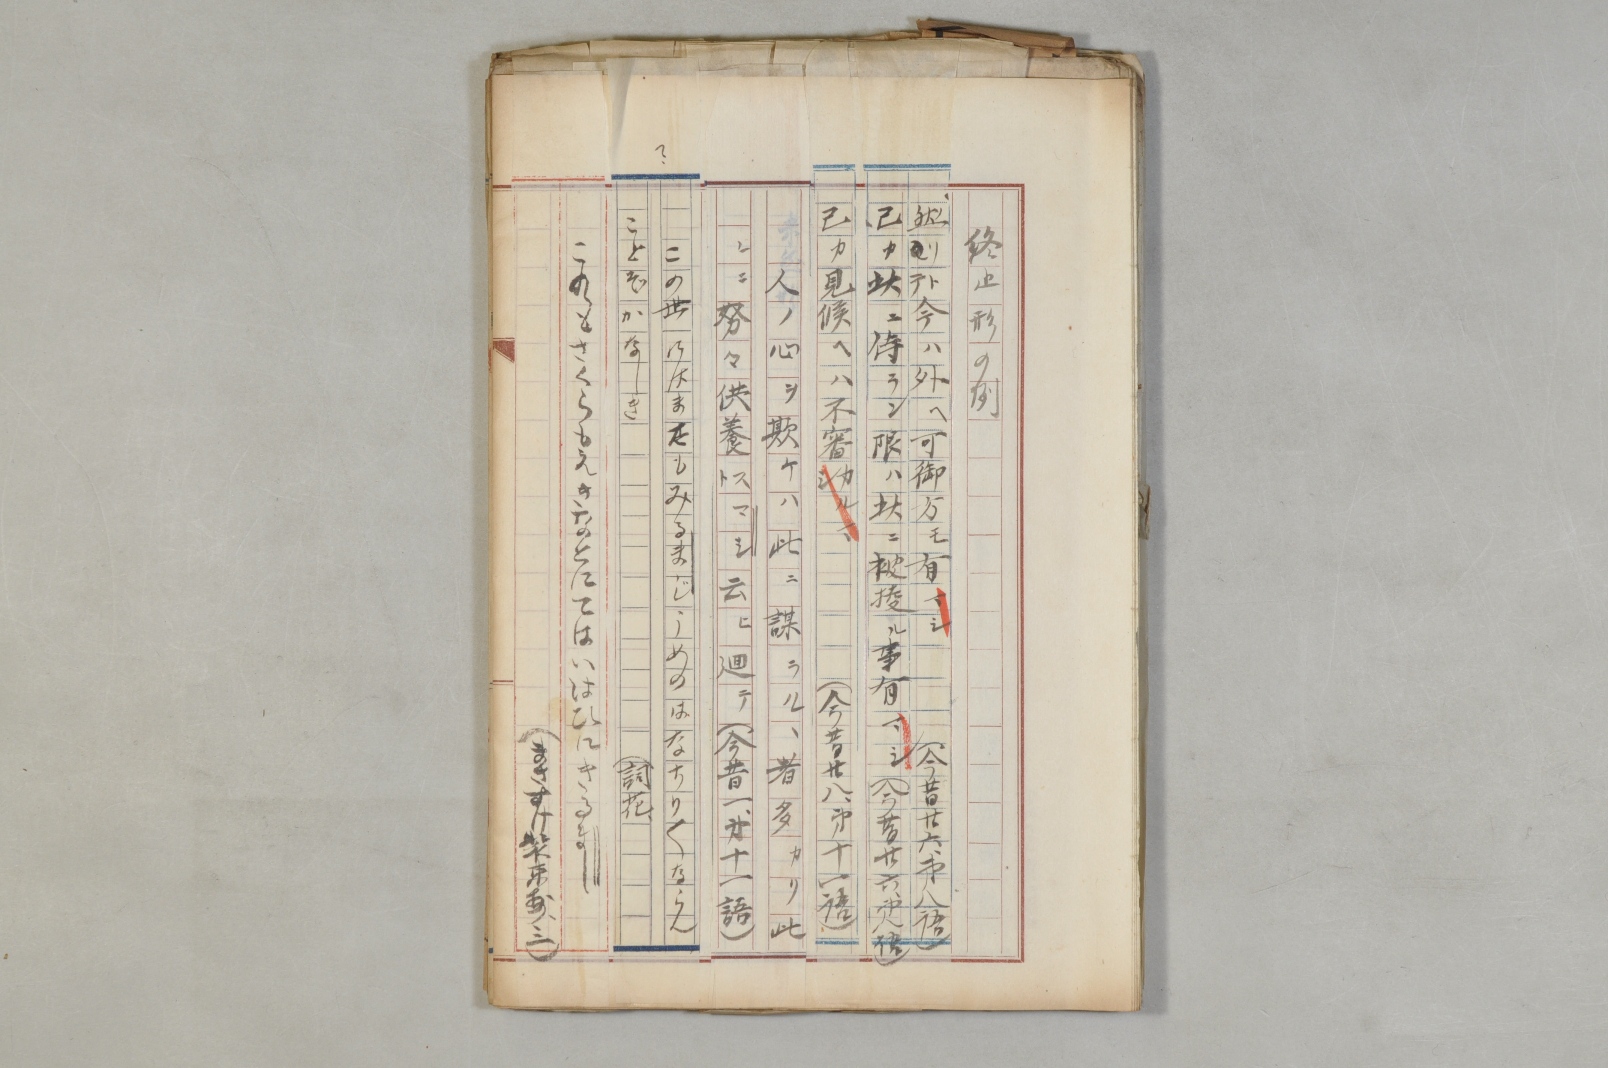 終止形の例
然則アト今ハ外ヘ可御方モ有マシ (今昔廿六、第八語)
己カ此ニ侍ラン限ハ此ニ被掕ル事有マシ (今昔廿六、第八語)
己カ見候ヘハ不審カルマシ (今昔廿八、第十一語)
人ノ心ヲ欺ケハ此ニ謀ラル、者多カリ此
レニ努々供養トスマシ云ヒ廻テ (今昔一、第十一語)
この世にはまたもみるまじうめのはなちり〱ならん
ことぞかなしき (詞花)
これもさくらもえきなとにてはいはひにきるまし
(まさすけ装束抄、三)